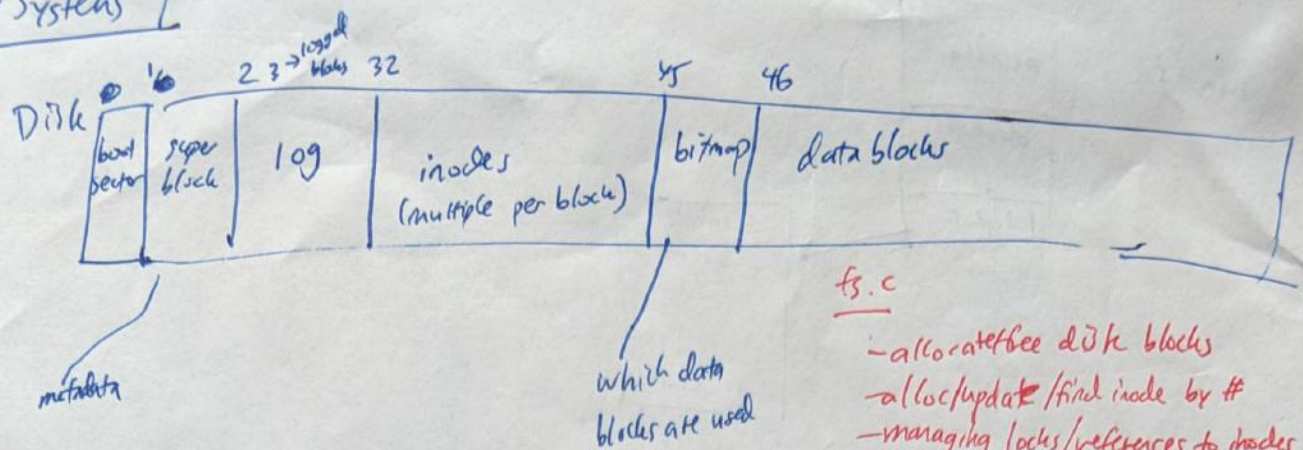 Systems
0 1 2 3 → logged blocks 32 45 46
Disk
boot sector
super block
log
inodes
(multiple per block)
bitmap
data blocks
metadata
which data
blocks are used
fs.c
- allocate/free disk blocks
- alloc/update/find inode by #
- managing locks/references to inodes